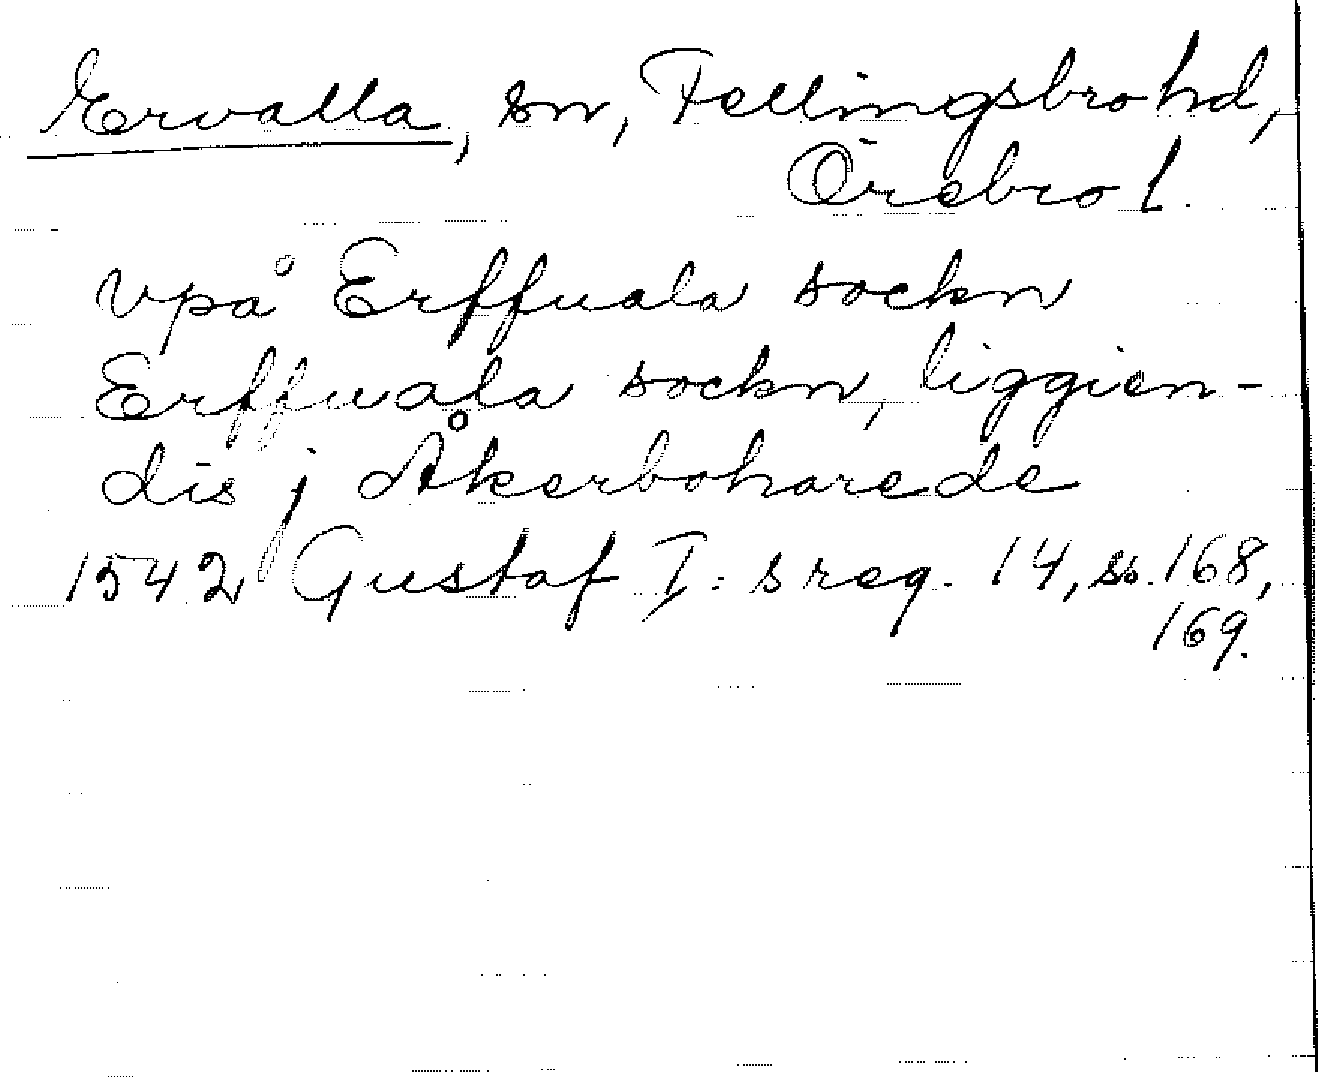 Ervalla, sn, Fellingsbro hd,
Örebro l.
vpå Erffuala sockn
Erffuala sockn, liggien-
dis j Åkerboharede
1542 Gustaf I:s reg. 14, ss. 168,
169.